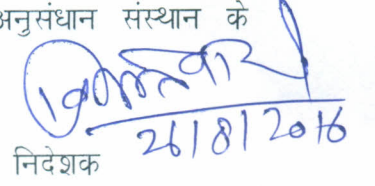 अनुसंधान संस्थान के
26/8/2016
निदेशक